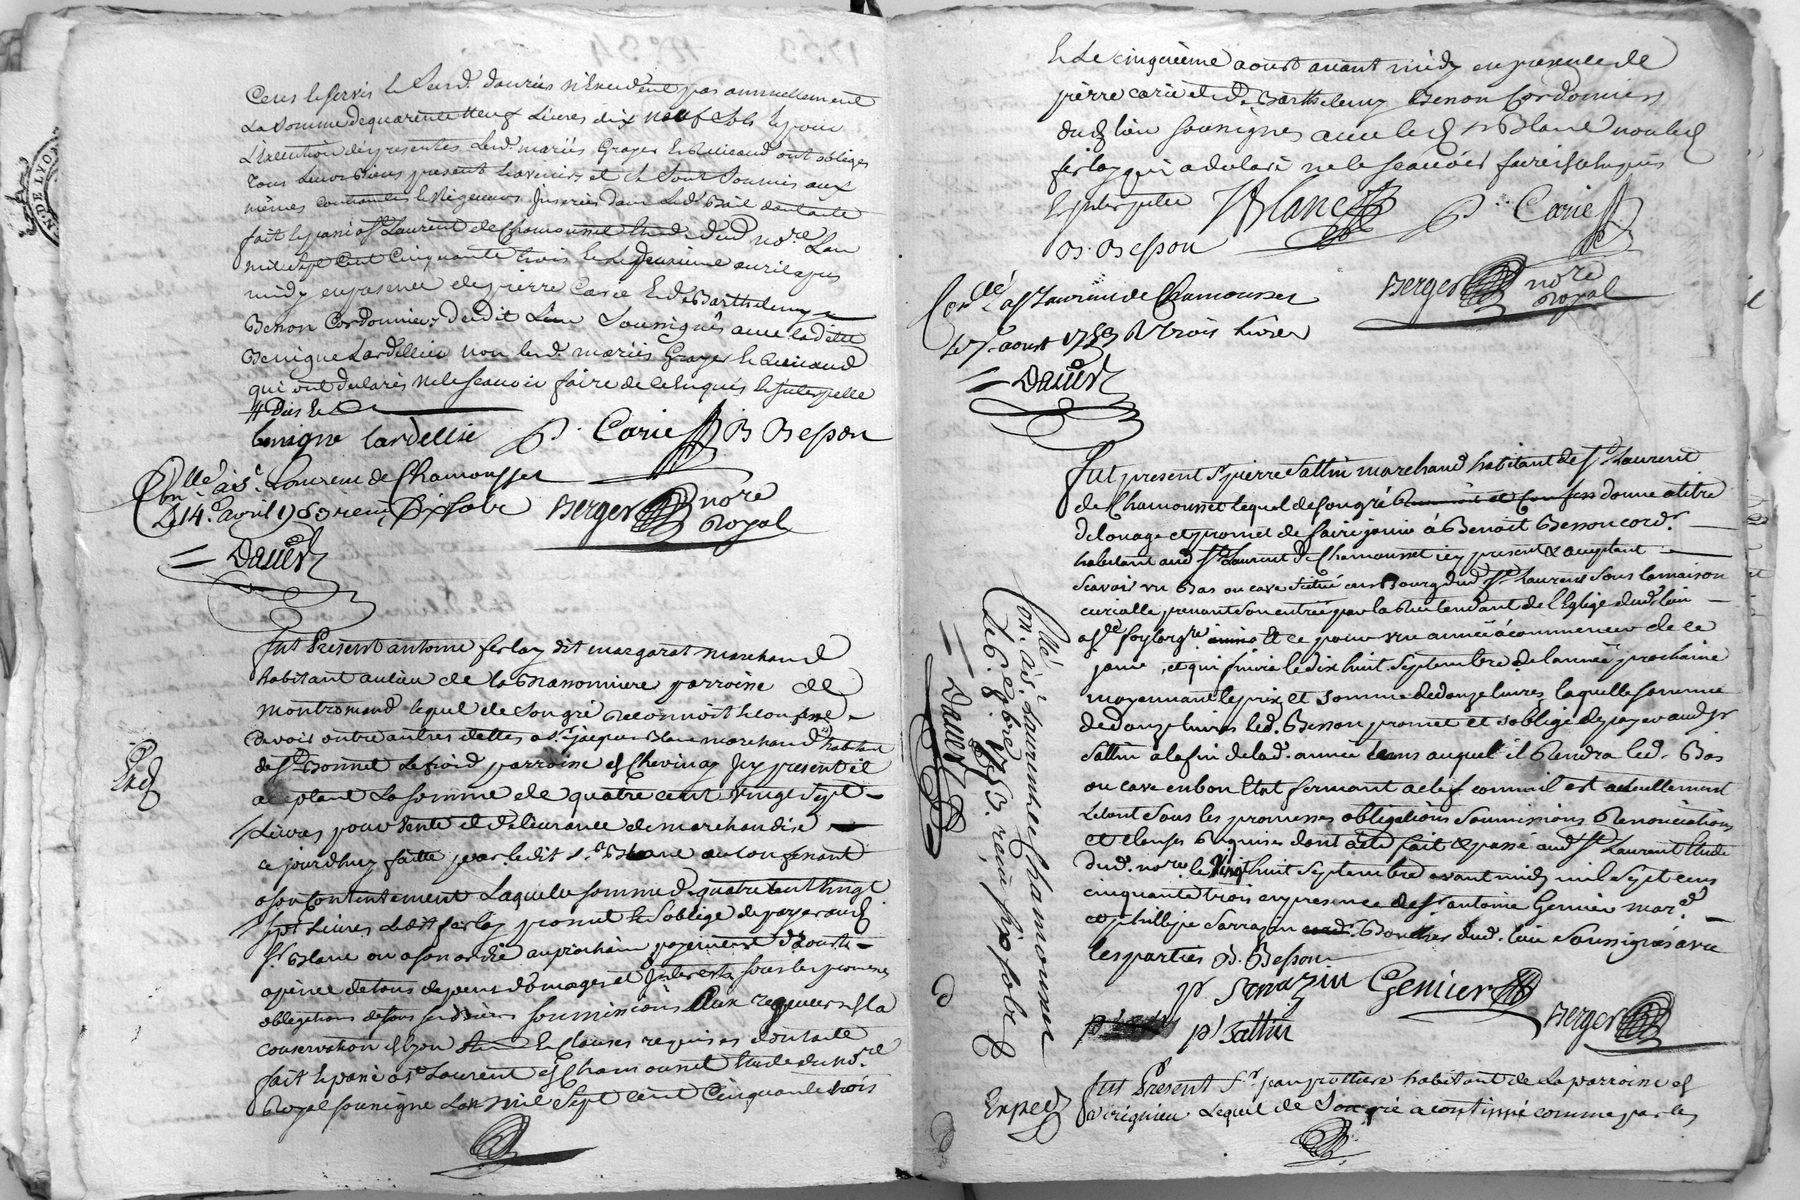 Cens et servis le
la somme de quarente neuf Livres dix neuf sols et pour
L'execution des presentes Lesd. mariés Grayer et ont obligés
tous leurs biens present et avenirs et se sont soumis aux
mêmes contraintes et Rigueurs Inserées dans Led. Bail dont acte
fait et passé a St Laurent de Chamousset Etude dud nore Lan
mil sept Cent Cinquante trois et le avril apres
midy en presence de pierre Carie et de Barthelemy
Besson Cordonniers dudit Lieu Soussignés avec laditte
Benigne Lardellier non lesd. mariés Grayer et
qui ont declarés ne le scavoir faire de ce Enquis et Interpellés
benigne Lardellie P. Carie B Besson
Conllé a St. Laurent de Chamousset
Le 14e avril 1753 reçu Dix sols Berger nore
Royal
Dauer
fut Present antoine ferlay dit margarat marchand
habitant au lieu de la Brassonniere parroisse de
montromand lequel de son gré Reconnoit et confesse
Devoir outre autres dettes a sr jacques Blanc marchand habitant
de St Bonnet Le froid parroisse de Chevinay Icy present et
acceptant La somme de quatre cent vingt sept
Livres pour vente et delivrance de marchandise
ce jourdhuy faitte par ledit sr Blanc au confessant
a son Contentement Laquelle somme de quatre cent vingt
sept Livres ledit ferlay promet et s'oblige de payer aud
sr Blanc ou a son ordre au prochain payement d'aoust
a peine de tous depens domages et Interests sous les promesses
obligations de tous ses biens soumissions aux rigueurs de la
conservation de Lyon et clauses requises dont acte
fait et passé a St Laurent de Chamousset Etude du nore
Royal soussigné Lan mil sept cent Cinquante trois
Exp
Et Le cinquieme aoust avant midy en presence de
pierre carie et de Barthelemy Besson Cordonniers
dud lieu soussignés avec led sr Blanc non led
ferlay qui a declaré ne le scavoir faire de ce Enquis
et Interpellé Blanc P. Carie
B. Besson
Conllé a St Laurent de Chamousset Berger nore
Le 7 aoust 1753 R trois Livres Royal
Dauer
fut present sr pierre Sattin marchand habitant de St Laurent
de Chamousset lequel de son gré donne a titre
de louage et promet de faire jouir à Benoit Besson cordr.
habitant aud St Laurent de Chamousset icy present et acceptant
Scavoir un Bas ou cave situé au Bourg dud St Laurent sous la maison
curialle prenant son entrée par la Rue tendant de l'Eglise dud lieu
a et ce pour une année à commencer de ce
jour et qui finira le dix huit septembre de l'année prochaine
moyennant le prix et somme de douze livres laquelle somme
de douze livres led. Besson promet et s'oblige de payer aud sr
Sattin a la fin de lad. année tems auquel il Rendra led. Bas
ou cave en bon Etat fermant a clef comme il est actuellement
Letout Sous les promesses obligations Soumissions Renonciations
et clauses Requises dont acte fait et passé aud St Laurent Etude
dud. nore le dix huit septembre avant midy mil sept cens
cinquante trois en presence de sr antoine Genier mard.
et phillippe Sarrazin Boucher dud. lieu Soussignés avec
les parties B. Besson
p Sarrazin Genier
p Sattin Berger
Conllé. a St. Laurent de Chamousset
le 6. 8bre 1753. reçu six sols
Dauer
Exped
fut Present sr jean pottiere habitant de La parroisse de
Lequel de Son gré a continué comme par les